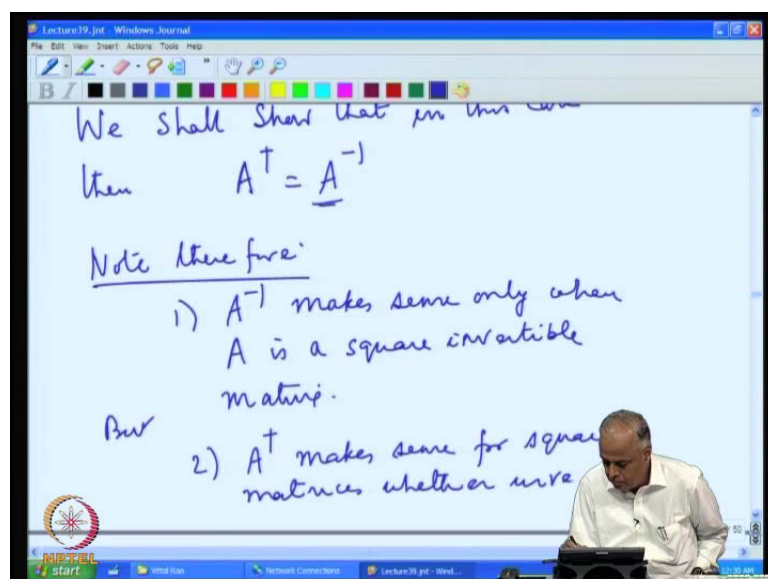 Lecture39.jnt - Windows Journal
File Edit View Insert Actions Tools Help
B I
We shall show that in this
then A† = A⁻¹
Note therefore:
1) A⁻¹ makes sense only when
A is a square invertible
matrix.
But
2) A† makes sense for square
matrices whether inve
NPTEL
start Vittal Rao Network Connections Lecture39.jnt - Wind... 12:30 AM
50